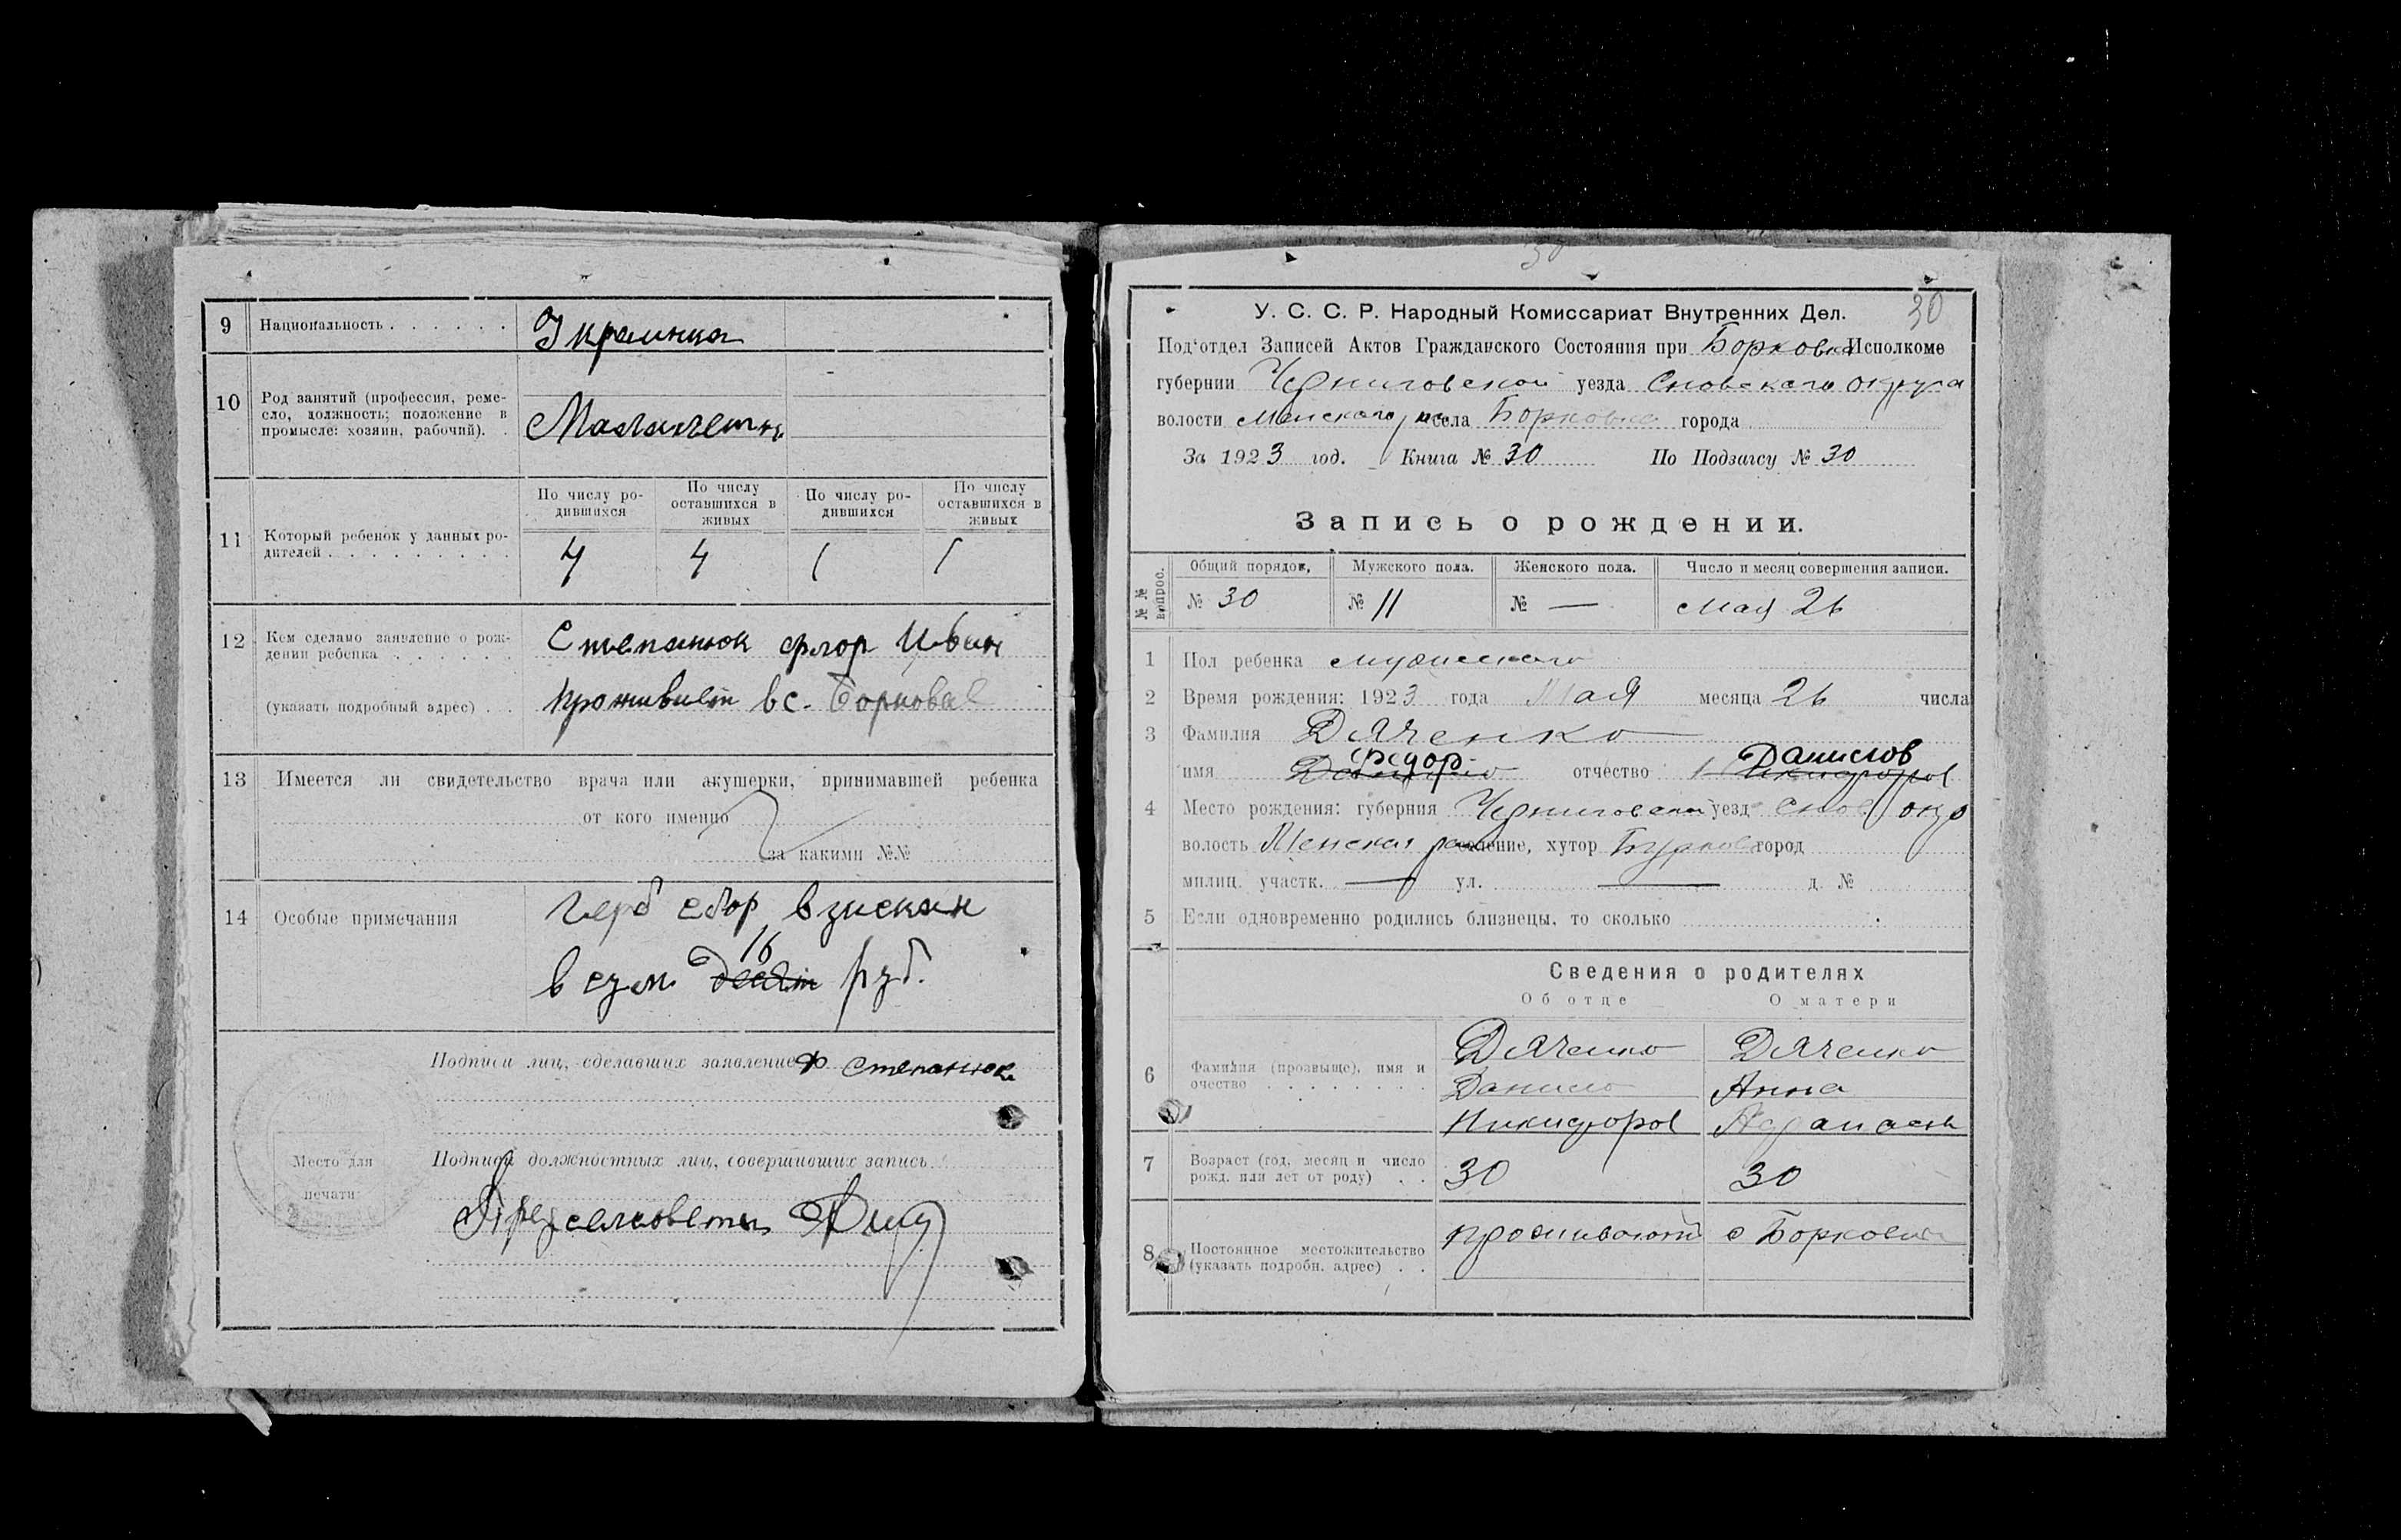 9 Национальность . . . . . . Украинка
10 Род занятий (профессия, реме-
сло, должность; положение в
промысле: хозяин, рабочий). .
11 Который ребенок у данных ро-
дителей . . . . . . . . .
По числу ро-
дившихся
По числу
оставшихся в
живых
По числу ро-
дившихся
По числу
оставшихся в
живых
4 4 1 1
12 Кем сделано заявление о рож-
дении ребенка . . . . . . Степанюк Флор Иван
(указать подробный адрес) . . проживает в с. Борковке
13 Имеется ли свидетельство врача или акушерки, принимавшей ребенка
от кого именно
за какими №№
14 Особые примечания герб сбор взискан
16
в сум десят руб.
Подписи лиц, сделавших заявление Ф Степанюк
Место для
печати
Подписи должностных лиц, совершивших запись
Пред сельсовета
30
30
У. С. С. Р. Народный Комиссариат Внутренних Дел.
Под'отдел Записей Актов Гражданского Состояния при Борковск Исполкоме
губернии Черниговской уезда Сновского округа
волости Менского села Борковка города
За 1923 год. Книга № 30 По Подзагсу № 30
Запись о рождении.
№ № вопрос.
Общий порядок, Мужского пола. Женского пола. Число и месяц совершения записи.
№ 30 № 11 № — мая 26
1 Пол ребенка мужеского
2 Время рождения: 1923 года Мая месяца 26 числа
3 Фамилия Дяченко
Федор Данилов
имя Данило отчество Никифоров
4 Место рождения: губерния Черниговская уезд Снов окр
волость Менская селение, хутор Бурковка город
милиц. участк. — ул. — д. №
5 Если одновременно родились близнецы, то сколько
Сведения о родителях
Об отце О матери
6 Фамилия (прозвыще), имя и
очество . . . . . . . .
Дяченко Дяченко
Данило Анна
Никифоров Афанасьев
7 Возраст (год, месяц и число
рожд. или лет от роду) . . 30 30
8 Постоянное местожительство
(указать подробн. адрес) . .
проживают с Борковка